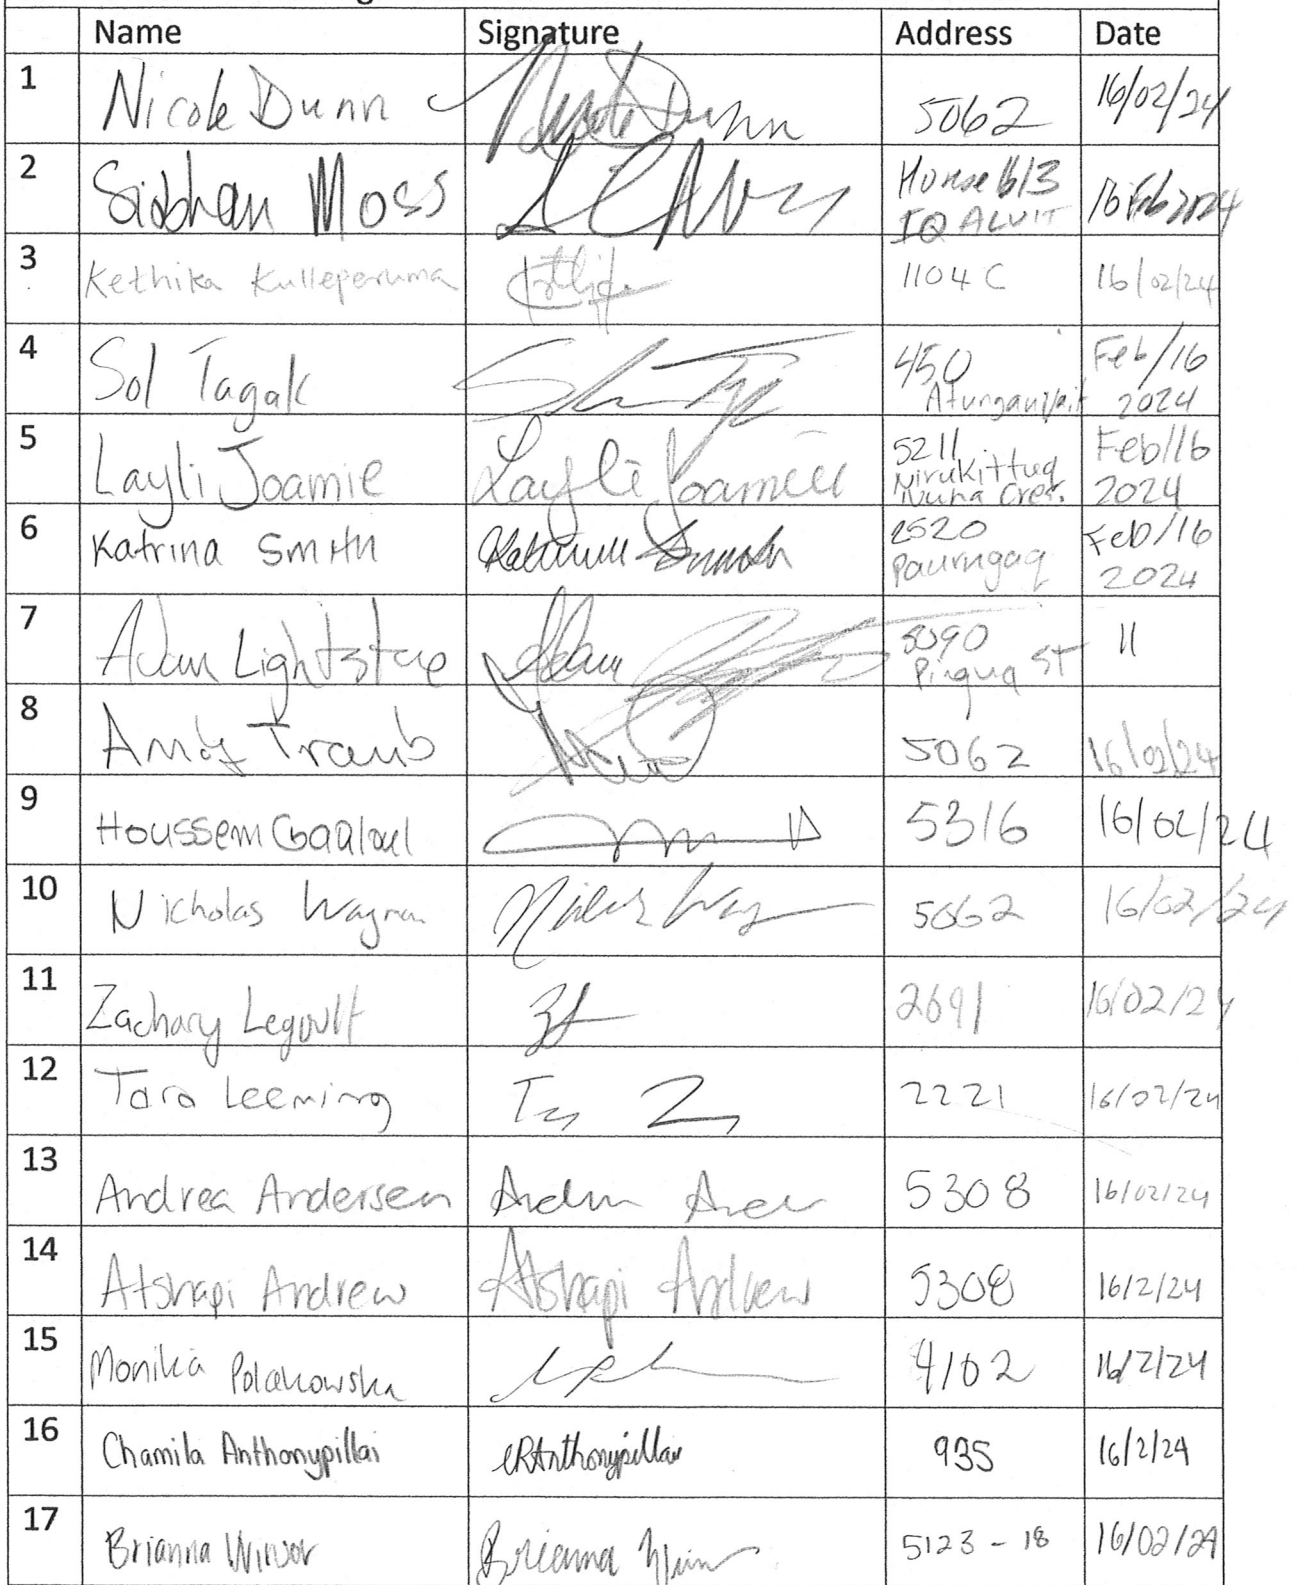 Name Signature Address Date
1 Nicole Dunn Nicole Dunn 5062 16/02/24
2 Siobhan Moss House 613 16 Feb 2024
IQALUIT
3 Kethika Kulleperuma 1104 C 16/02/24
4 Sol Tagak 450 Feb/16
2024
5 Layli Joamie Layli Joamie 5211 Feb/16
Nirukittuq
Nuna Cres. 2024
6 Katrina Smith Katrina Smith 2520 Feb/16
Paurngaq 2024
7 Adam Lightstone Adam 5090 11
Piqua St
8 Andy Traub 5062 16/02/24
9 Houssem 5316 16/02/24
10 Nicholas Wagman 5062 16/02/24
11 Zachary Legault 2691 16/02/24
12 Tara Leeming 2221 16/02/24
13 Andrea Andersen 5308 16/02/24
14 Atshapi Andrew Atshapi Andrew 5308 16/2/24
15 Monika Polakowska 4102 16/2/24
16 Chamila Anthonypillai CRAnthonypillai 935 16/2/24
17 Brianna Brianna 5123 - 18 16/02/24